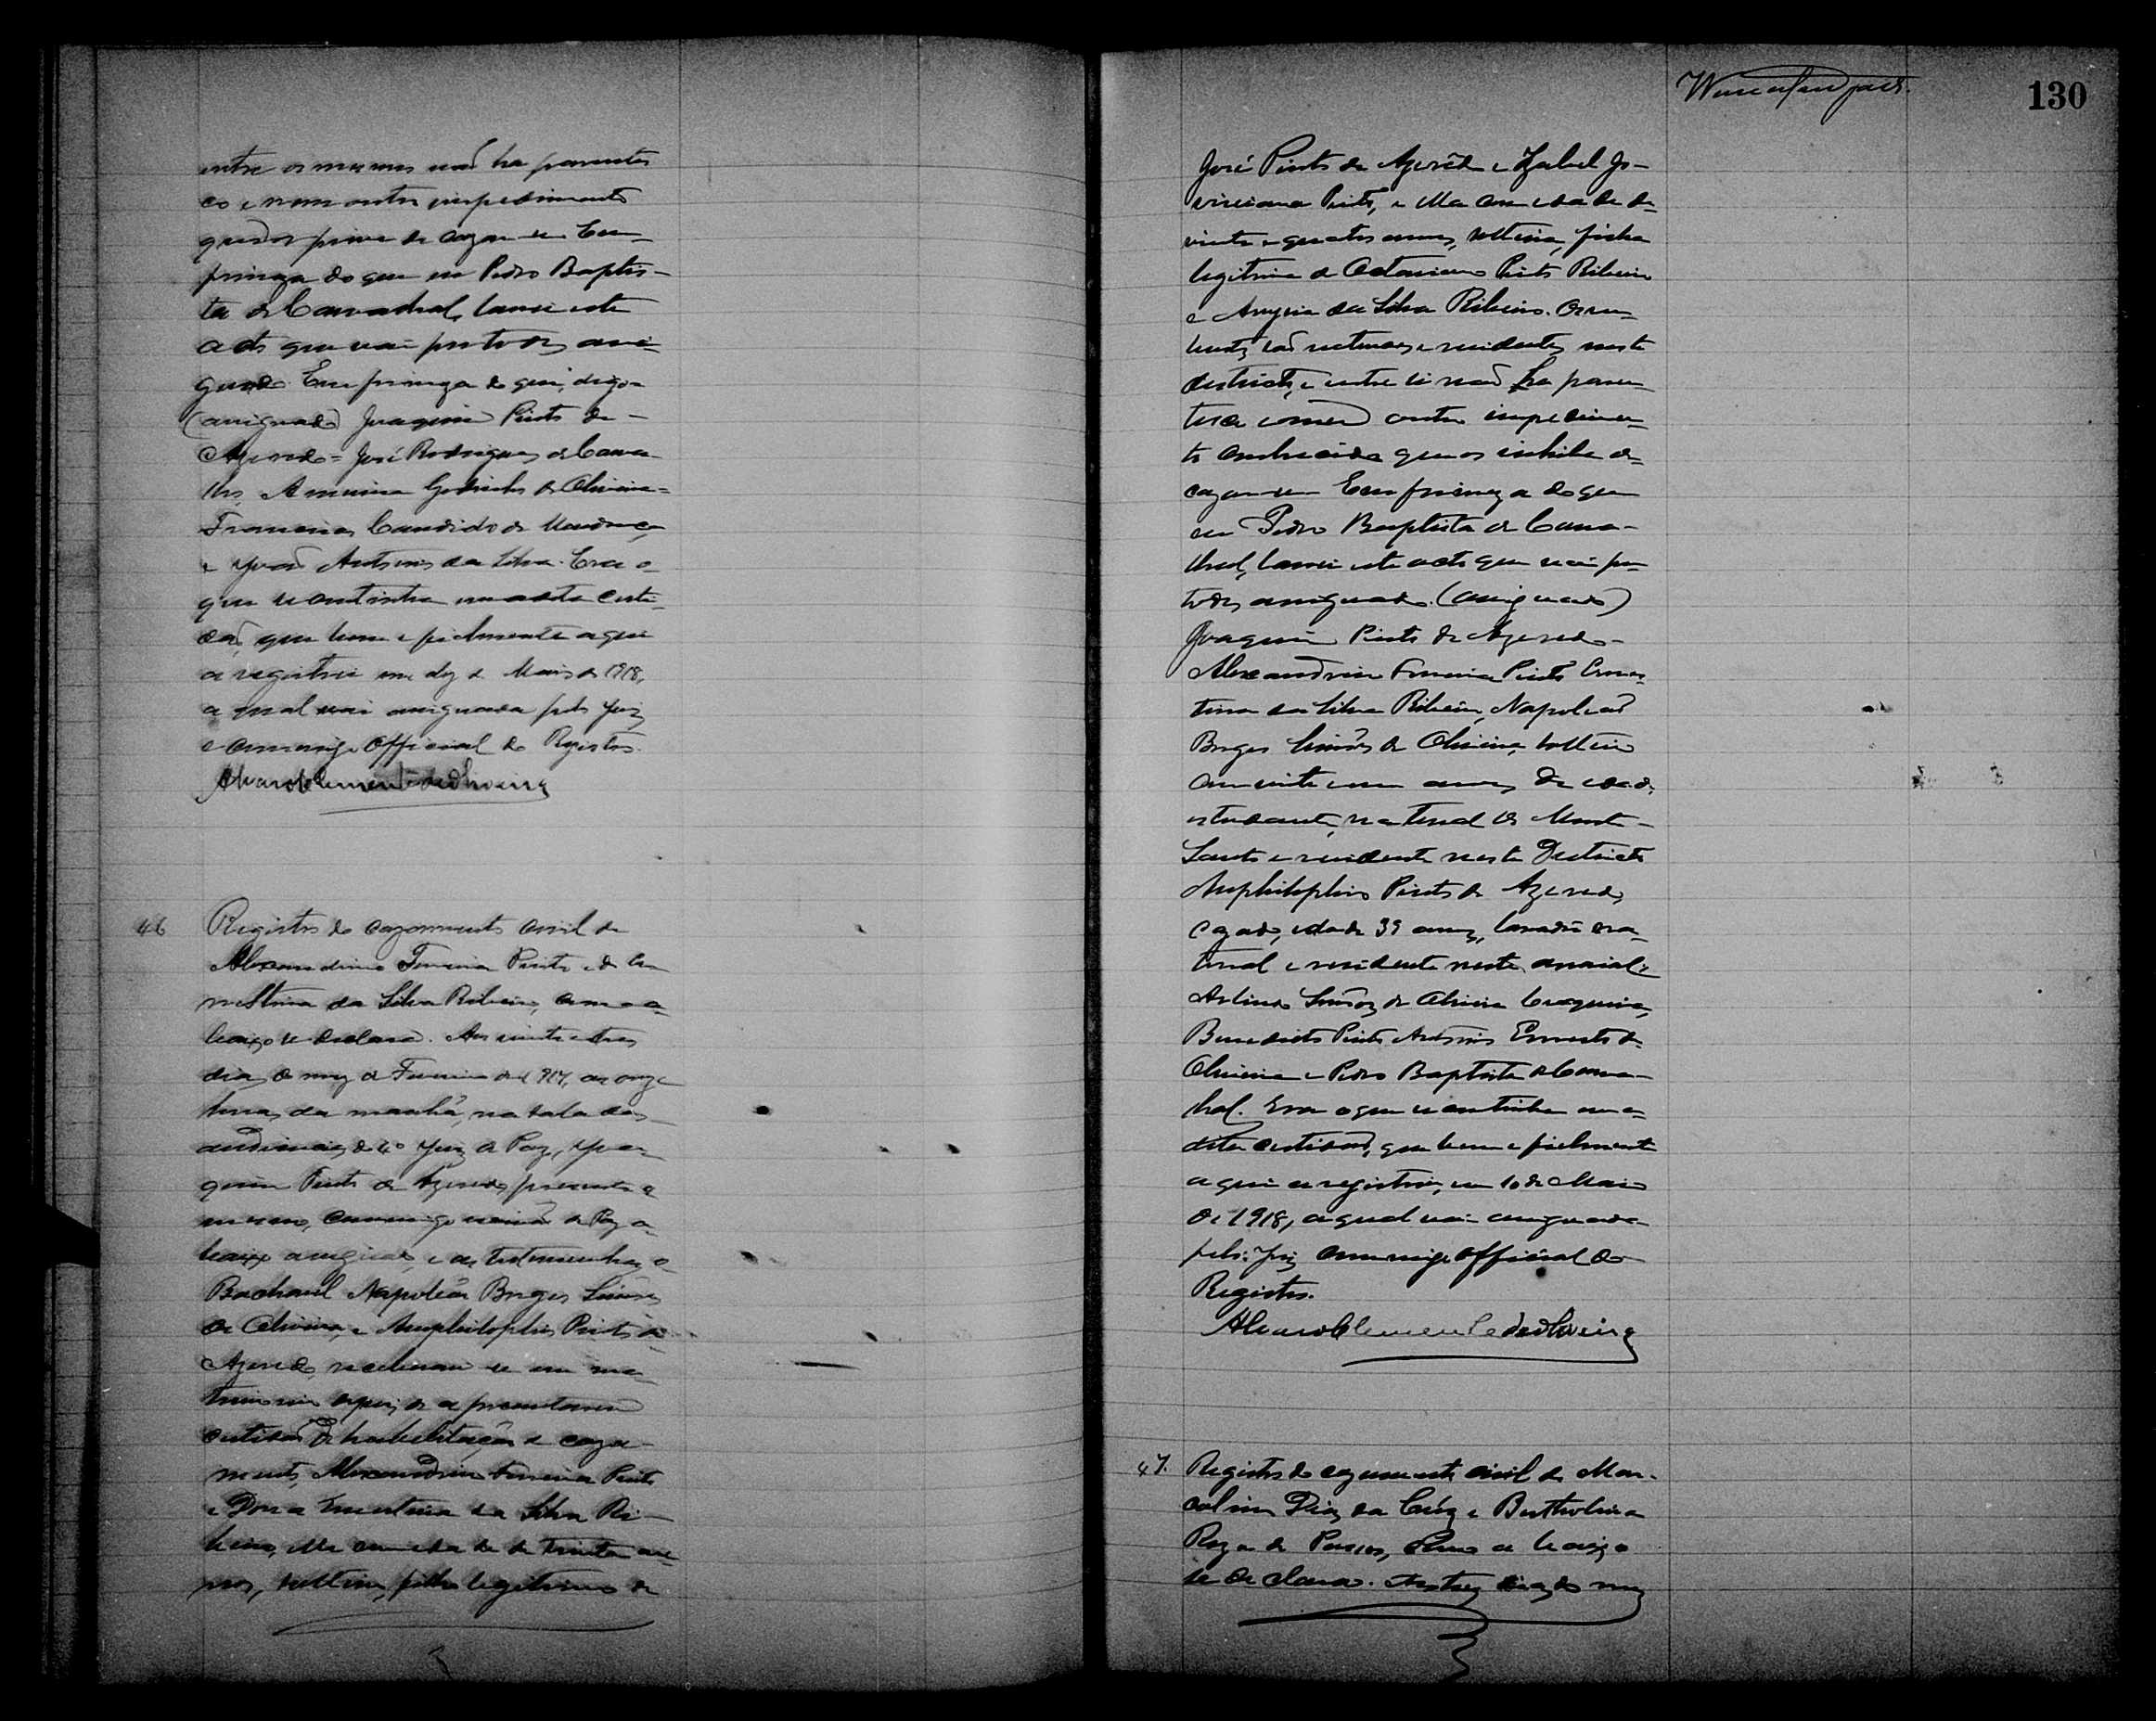 entre os mesmos não ha parentes
co e nem outro impedimento
que os prive de cazar-se Em
firmeza do que eu Pedro Baptis-
ta de Carvalhal, lavrei este
acto que vai por todos assi-
gnado. Em firmeza do que, digo =
(assignado) Joaquim Pinto de -
Azevedo = José Rodrigues de Carva-
lho, Godinho de Oliveira =
Francisco Candido de Mendonça
e João Antonio da Silva. Era o
que se continha em a dita certi-
dão, que bem e fielmente aqui
a registrei em dez de Maio de 1918,
a qual vai assignada pelo Juiz
e commigo Official do Registro.
Alvaro Clemente de Oliveira
46 Registro do cazamento civil de
Alexandrino Ferreira Pinto e de Er
nestina da Silva Ribeiro, como a-
baixo se declara. Aos vinte e tres
dias do mez de Fevereiro de 1917, as onze
horas da manhã, na sala das
audiencias do 4º Juiz de Paz, Joa-
quim Pinto de Azevedo, presente o
mesmo, commigo escrivão de Paz a-
baixo assignado, e as testemunhas o
Bacharel Napoleão Borges Simões
de Oliveira, e Amphilophio Pinto de
Azevedo, receberam-se em ma-
trimonio depois de apresentarem
certidão de habilitação de caza-
mento, Alexandrino Ferreira Pinto
e Dona Ernestina da Silva Ri-
beiro, elle com idade de trinta an-
nos, solteiro, filho legitimo de
130
José Pinto de Azevêdo e Izabel Jo-
viniana Pinto, e ella com idade de
vinte e quatro annos, solteira, filha
legitima de Octaviano Pinto Ribeiro
e da Silva Ribeiro. Os nu-
bentes são naturaes e residentes neste
districto, e entre si não ha paren-
tesco outro impedimen-
to conhecido que os inhiba de
cazar-se Em firmeza do que
eu Pedro Baptista de Carva-
lhal, lavrei este acto que vai por
todos assignado. (assignado)
Joaquim Pinto de Azevedo -
Alexandrino Ferreira Pinto Ernes-
tina da Silva Ribeiro, Napoleão
Borges Simões de Oliveira, solteiro
com vinte e um annos de idade,
estudante, natural de Monte-
Santo e residente neste Districto
Amphilophio Pinto de Azevedo,
cazado, idade 39 annos, lavrador na-
tural e residente neste arraial;
Simões de Oliveira
Benedicto Pinto Antonio Ernesto de
Oliveira e Pedro Baptista de Carva-
lhal. Era o que se continha em a
dita certidão, que bem e fielmente
aqui a registrei, em 10 de Maio
de 1918, a qual vai assignada
pelo Juiz commigo Official do
Registro.
Alvaro Clemente de Oliveira
47. Registro do cazamento civil de Mar-
colino Dias da Cruz e Bertholina
Roza de Passos, como a baixo
se declara. Aos tres dias do mez